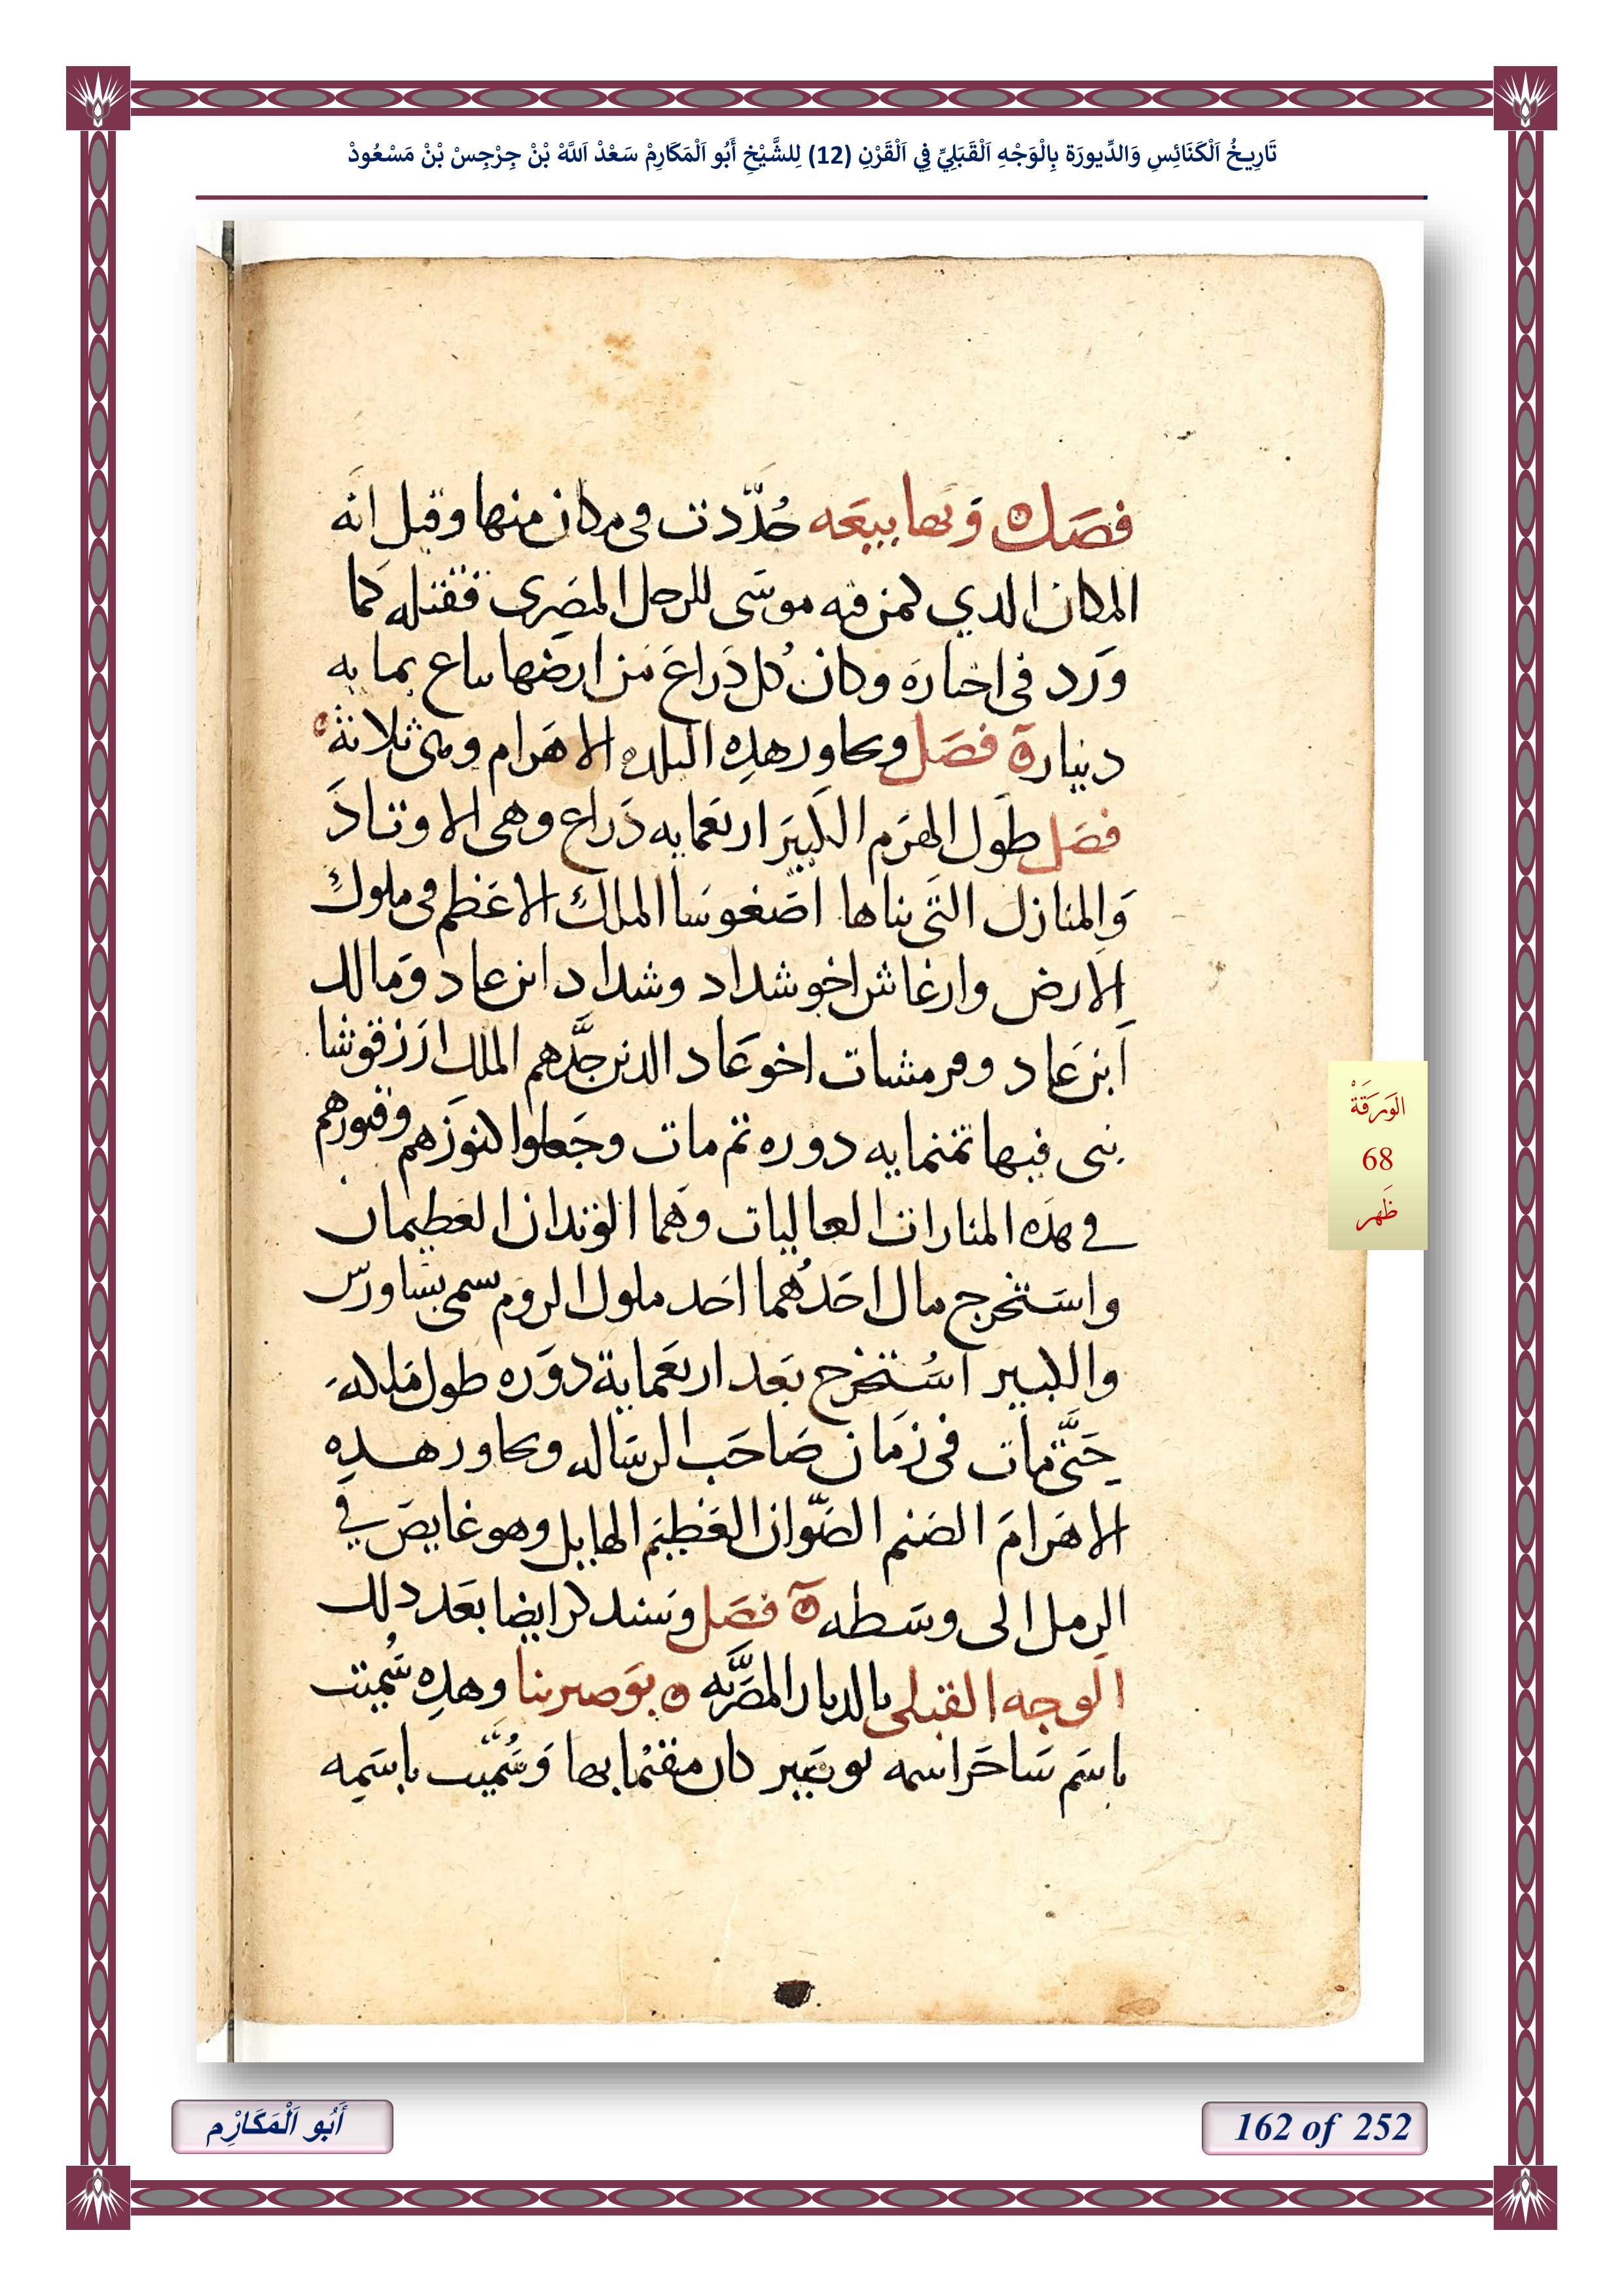 تَارِيخُ اَلْكَنَائِسِ وَالدِّيورَة بِالْوَجْهِ اَلْقَبَلِيِّ فِي اَلْقَرْنِ (12) لِلشَّيْخِ أَبُو اَلْمَكَارِمْ سَعْدْ اَللَّهْ بْنْ جِرْجِسْ بْنْ مَسْعُودْ
فصَل وَبها بيعَه جُدِّدت فى مكان منها وقيل انه
المكان الدي كمن فيه موسَى للرجل المصَرى فقتله كما
وَرَد فى اخبارَه وكان كل دَراعَ من ارضها يباع بمايه
دينار فصَل ويجاور هدِه البلده الاهَرام وهى ثلاثة
فصَل طَول الهرَم الكبيَر اربعَمايه دَراع وهى الاوتادَ
وَالمنازل التَى بناها اصَغوسَا الملك الاعَظم فى ملوك
الارض وارغاش اخو شداد وشداد ابن عاد وَمالك
اَبن عَاد وفرمشات اخو عَاد الدين جدَّهم الملك ازَرقوشا
بنى فيها تمنمايه دوره تم مات وجَعلوا كنوزَهم وقبورهم
في هدَه المنارات العاليات وَهَما الوتدان العَظيمان
واسَتخرج مال احَدهُما احَد ملوك الروم يسمى بشاورس
والكبير استُخرج بعَد اربعَماية دوَره طول مَلكه
حَتَّى مات فى زمَان صَاحَب الرسَاله ويجاور هدِه
الاهَرامَ الصَنم الصَوّان العَظيَم الهايل وهو غايصَ في
الرمل الى وسَطه فصَل وسَندكر ايضا بعَد دلك
الَوجه القبلى بالديار المصَريَّه بوَصير بنا وهدِه سُميت
باسَم سَاحَر اسمه بوصَير كان مقيمًا بها وَسُمّيت باسَمِه
الوَرَقَةْ
68
ظَهر
أَبُو اَلْمَكَارِْم
162 of 252